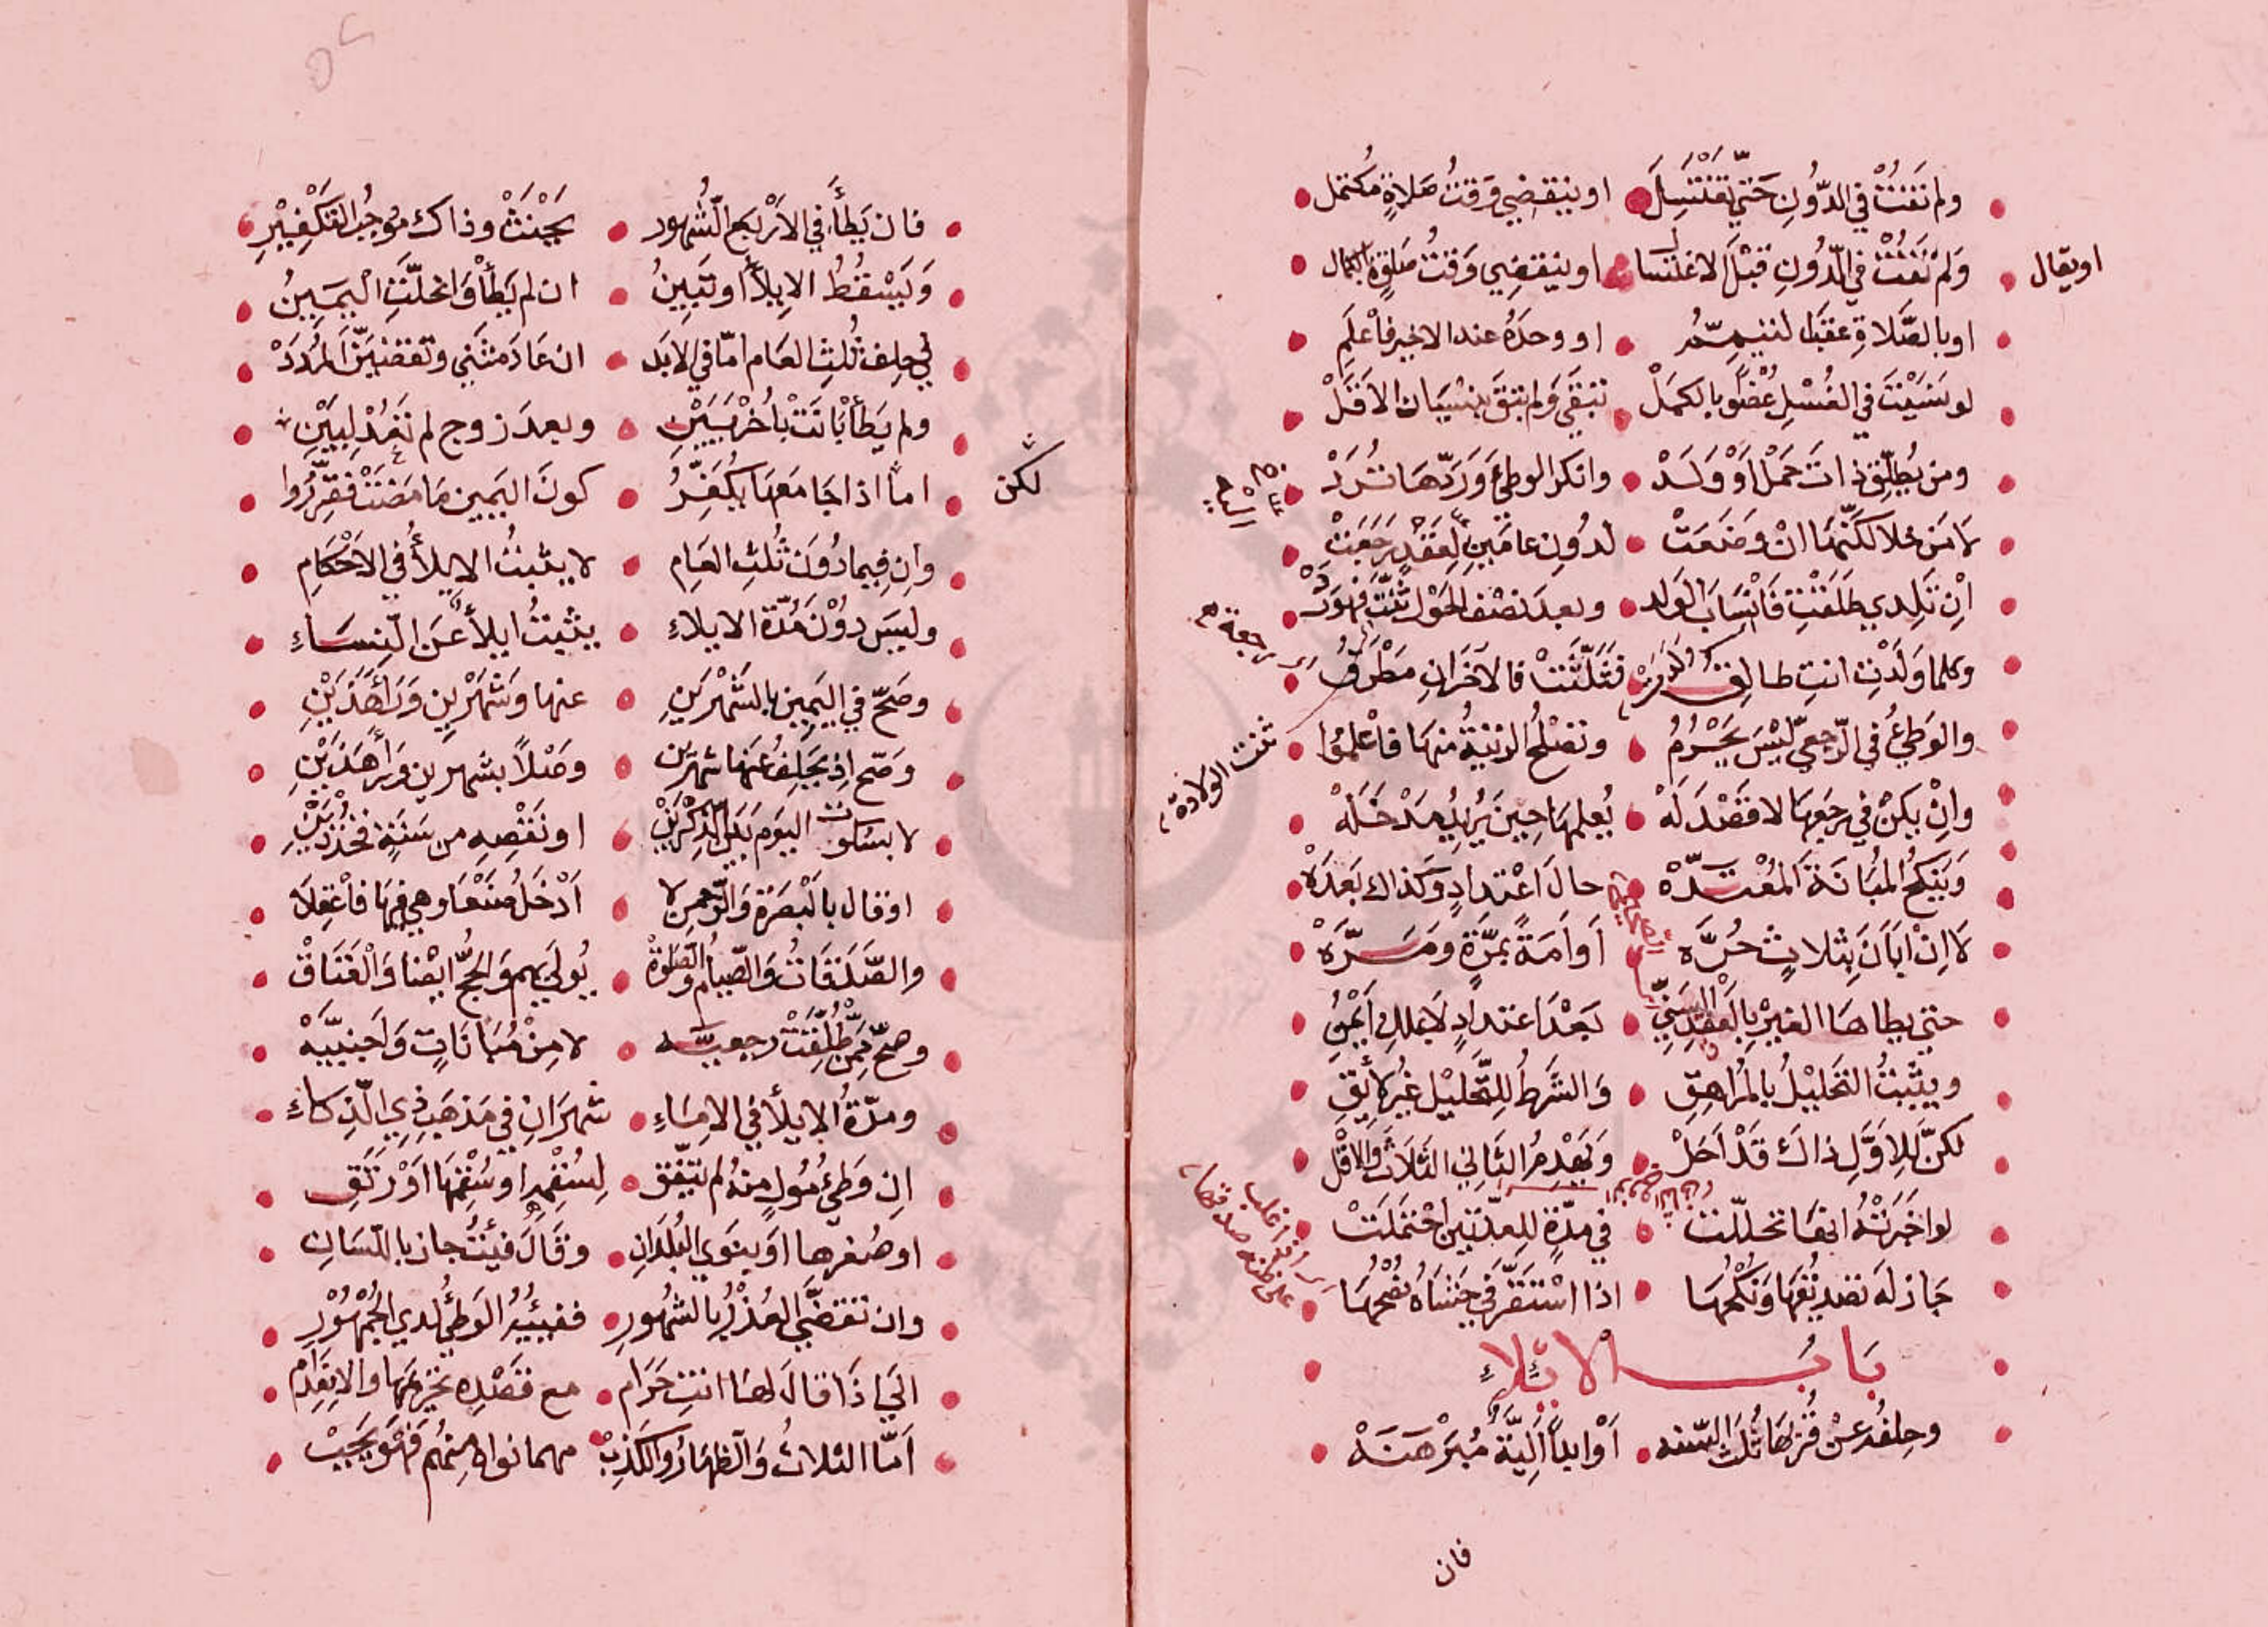 ولم تفت في الدون حتى تغتسل او ينقضي وقت صلاة مكتمل
او يقال
ولم تفت في الدون قبل الاغتسال او ينقضي وقت صلوة بالكمال
او بالصلاة عقبا لتيممه او وحده عند الاخير فاعلم
لو نسيت في الغسل عضوا بالكمل تبقى ولم تبق بنسيان الاقل
ومن يطلق ذات حمل او ولد وانكر الوطئ وردها ترد
لا من خلا لكنها ان وضعت لدون عامين لعقد رجعت
ان تلدي طلقت فانساب الولد وبعد نصف الحول ثنت فهو رد
وكلما ولدت انت طالق فثلثت فالاخران مطرق
والوطئ في الرجعي ليس يحرم وتصلح الزينة منها فاعلموا
ثنت الولادة
وان يكن في رجعها لا قصد له يعلمها حين يريد مدخله
وينكح المبانة المعتده حال اعتداد وكذاك بعده
لا ان ابان بثلاث حره او امة بمرة ومره
حتى يطاها الغير بالعقد السني بعد اعتداد لا بملك ايمن
ويثبت التحليل بالمراهق والشرط للتحليل غير لائق
لكن للاول ذاك قد احل ويهدم الثاني الثلاث والاقل
لو اخبرته انها تحللت في مدة للعدتين احتملت
ان غلب على ظنه صدقها
جاز له تصديقها ونكحها اذا استقر في حشاه نصحها
باب الايلاء
وحلفه عن قربها ثلث السنه او ابدا الية مبرهنه
فان
فان يطأ في الاربع الشهور يحنث وذاك موجب التكفير
ويسقط الايلا او تبين ان لم يطأ وانحلت اليمين
في حلف ثلث العام اما في الابد ان عاد مثنى وتقضين المدد
ولم يطأ بانت باخريين وبعد زوج لم تعد لبين
لكن
اما اذا جامعها يكفر كون اليمين ما مضت فقرروا
وان فيما دون ثلث العام لا يثبت الايلأ في الاحكام
وليس دون مدة الايلاء يثبت ايلأ عن النساء
وصح في اليمين بالشهرين عنها وشهرين ورا هذين
وصح اذ يحلف عنها شهرين وصلا بشهرين ورا هذين
لا بسكوت اليوم بين الذكرين او نقصه من سنة فخذ بين
او قال بالبصرة والرحمن لا ادخل صنعا وهي فيها فاعقلا
والصدقات والصيام والصلوة يولي بهم والحج ايضا والعتاق
وصح ممن طلقت رجعيه لا من مبانات واجنبيه
ومدة الايلأ في الاماء شهران في مذهب ذي الذكاء
ان وطئ مول منه لم يتفق لسقمه او سقمها او رتق
او صغرها او ينوى البلدان وقال فيئت جاز باللسان
وان تقضى العذر بالشهور ففيئه الوطئ لدي الجمهور
الي اذا قال لها انت حرام مع قصده تحريمها والانعدام
اما الثلاث والظهار والكذب مهما نواه منهم فهو يجب